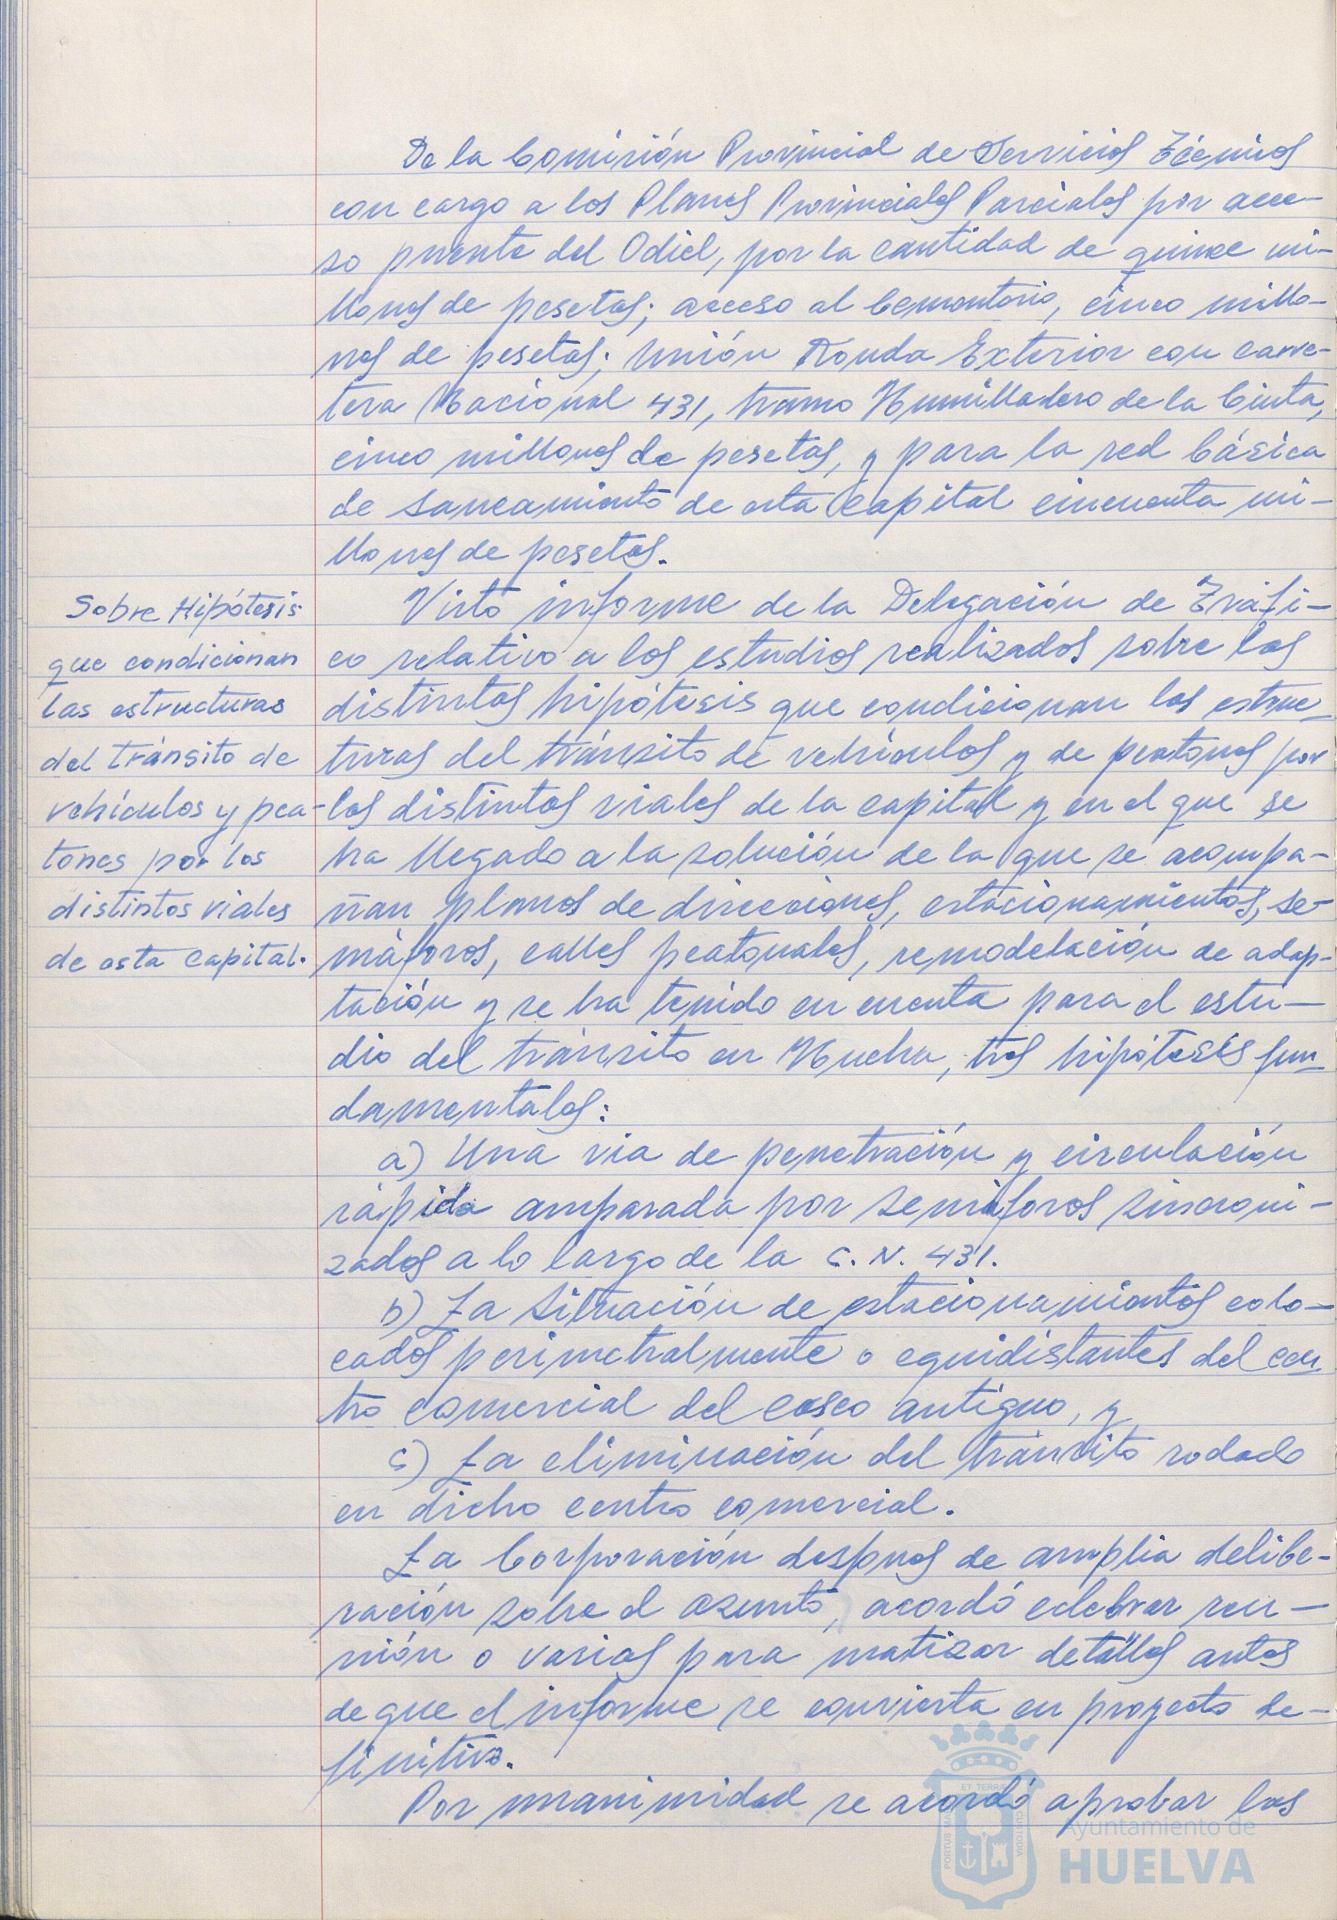 De la Comisión Provincial de Servicios Técnicos
con cargo a los Planes Provinciales Parciales por acce-
so puente del Odiel, por la cantidad de quince mi-
llones de pesetas; acceso al Cementerio, cinco millo-
nes de pesetas; unión Ronda Exterior con carre-
tera Nacional 431, tramo Humilladero de la Cinta,
cinco millones de pesetas, y para la red básica
de saneamiento de esta Capital cincuenta mi-
llones de pesetas.
Sobre Hipótesis
que condicionan
las estructuras
del tránsito de
vehículos y pea-
tones por los
distintos viales
de esta Capital.
Visto informe de la Delegación de Tráfi-
co relativo a los estudios realizados sobre las
distintas hipótesis que condicionan las estruc-
turas del tránsito de vehículos y de peatones por
los distintos viales de la capital y en el que se
ha llegado a la solución de la que se acompa-
ñan planos de direcciones, estacionamientos, se-
máforos, calles peatonales, remodelación de adap-
tación y se ha tenido en cuenta para el estu-
dio del tránsito en Huelva, tres hipótesis fun-
damentales:
a) Una via de penetración y circulación
rápida amparada por semáforos sincroni-
zados a lo largo de la C. N. 431.
b) La situación de estacionamientos colo-
cados perimetralmente o equidistantes del cen-
tro comercial del casco antiguo, y
c) La eliminación del tránsito rodado
en dicho centro comercial.
La Corporación despues de amplia delibe-
ración sobre el asunto, acordó celebrar reu-
nión o varias para matizar detalles antes
de que el informe se convierta en proyecto de-
finitivo.
Por unanimidad se acordó aprobar las
ET TERRAE
PORTUS MARIS
CUSTODIA
Ayuntamiento de
HUELVA